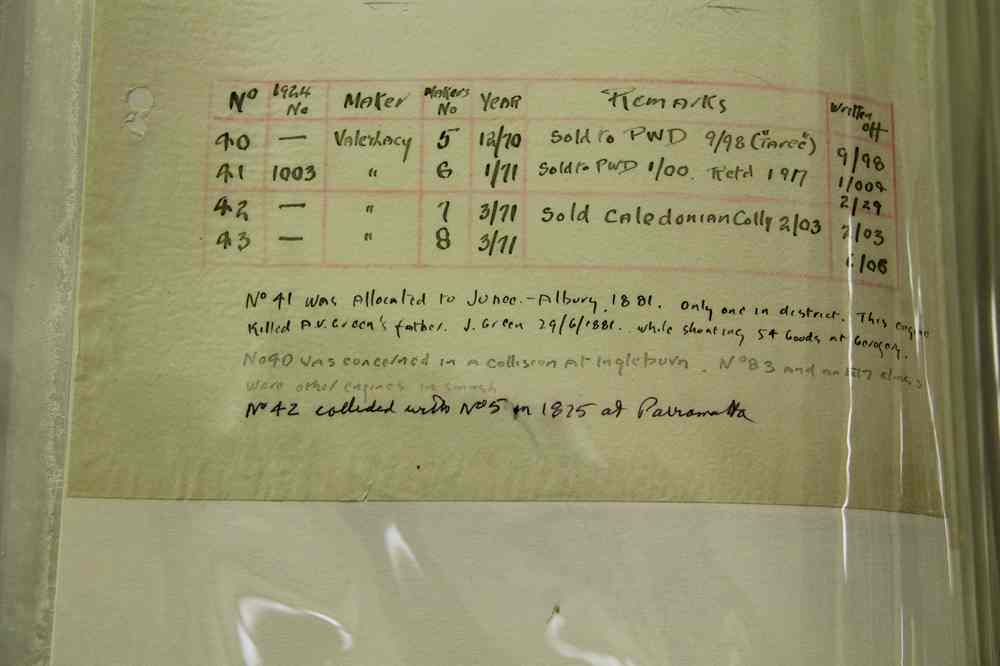 No 1924 No Maker Makers No Year Remarks Written off
40 — Valeshacy 5 12/70 Sold to PWD 9/98 ("Taree") 9/98
41 1003 " 6 1/71 Sold to PWD 1/00. Retd 1917 1/00
2/29
42 — " 7 3/71 Sold Caledonian Colly 2/03 2/03
43 — " 8 3/71 6/08
No 41 was Allocated to Junee.-Albury, 1881. Only one in district. This engine
Killed A.V. Green's father. J. Green 29/6/1881.. while shunting 54 Goods at Gerogery.
No 40 was concerned in a collision at Ingleburn. No 83 and an E17 class
were other engines in smash
No 42 collided with No 5 in 1825 at Parramatta